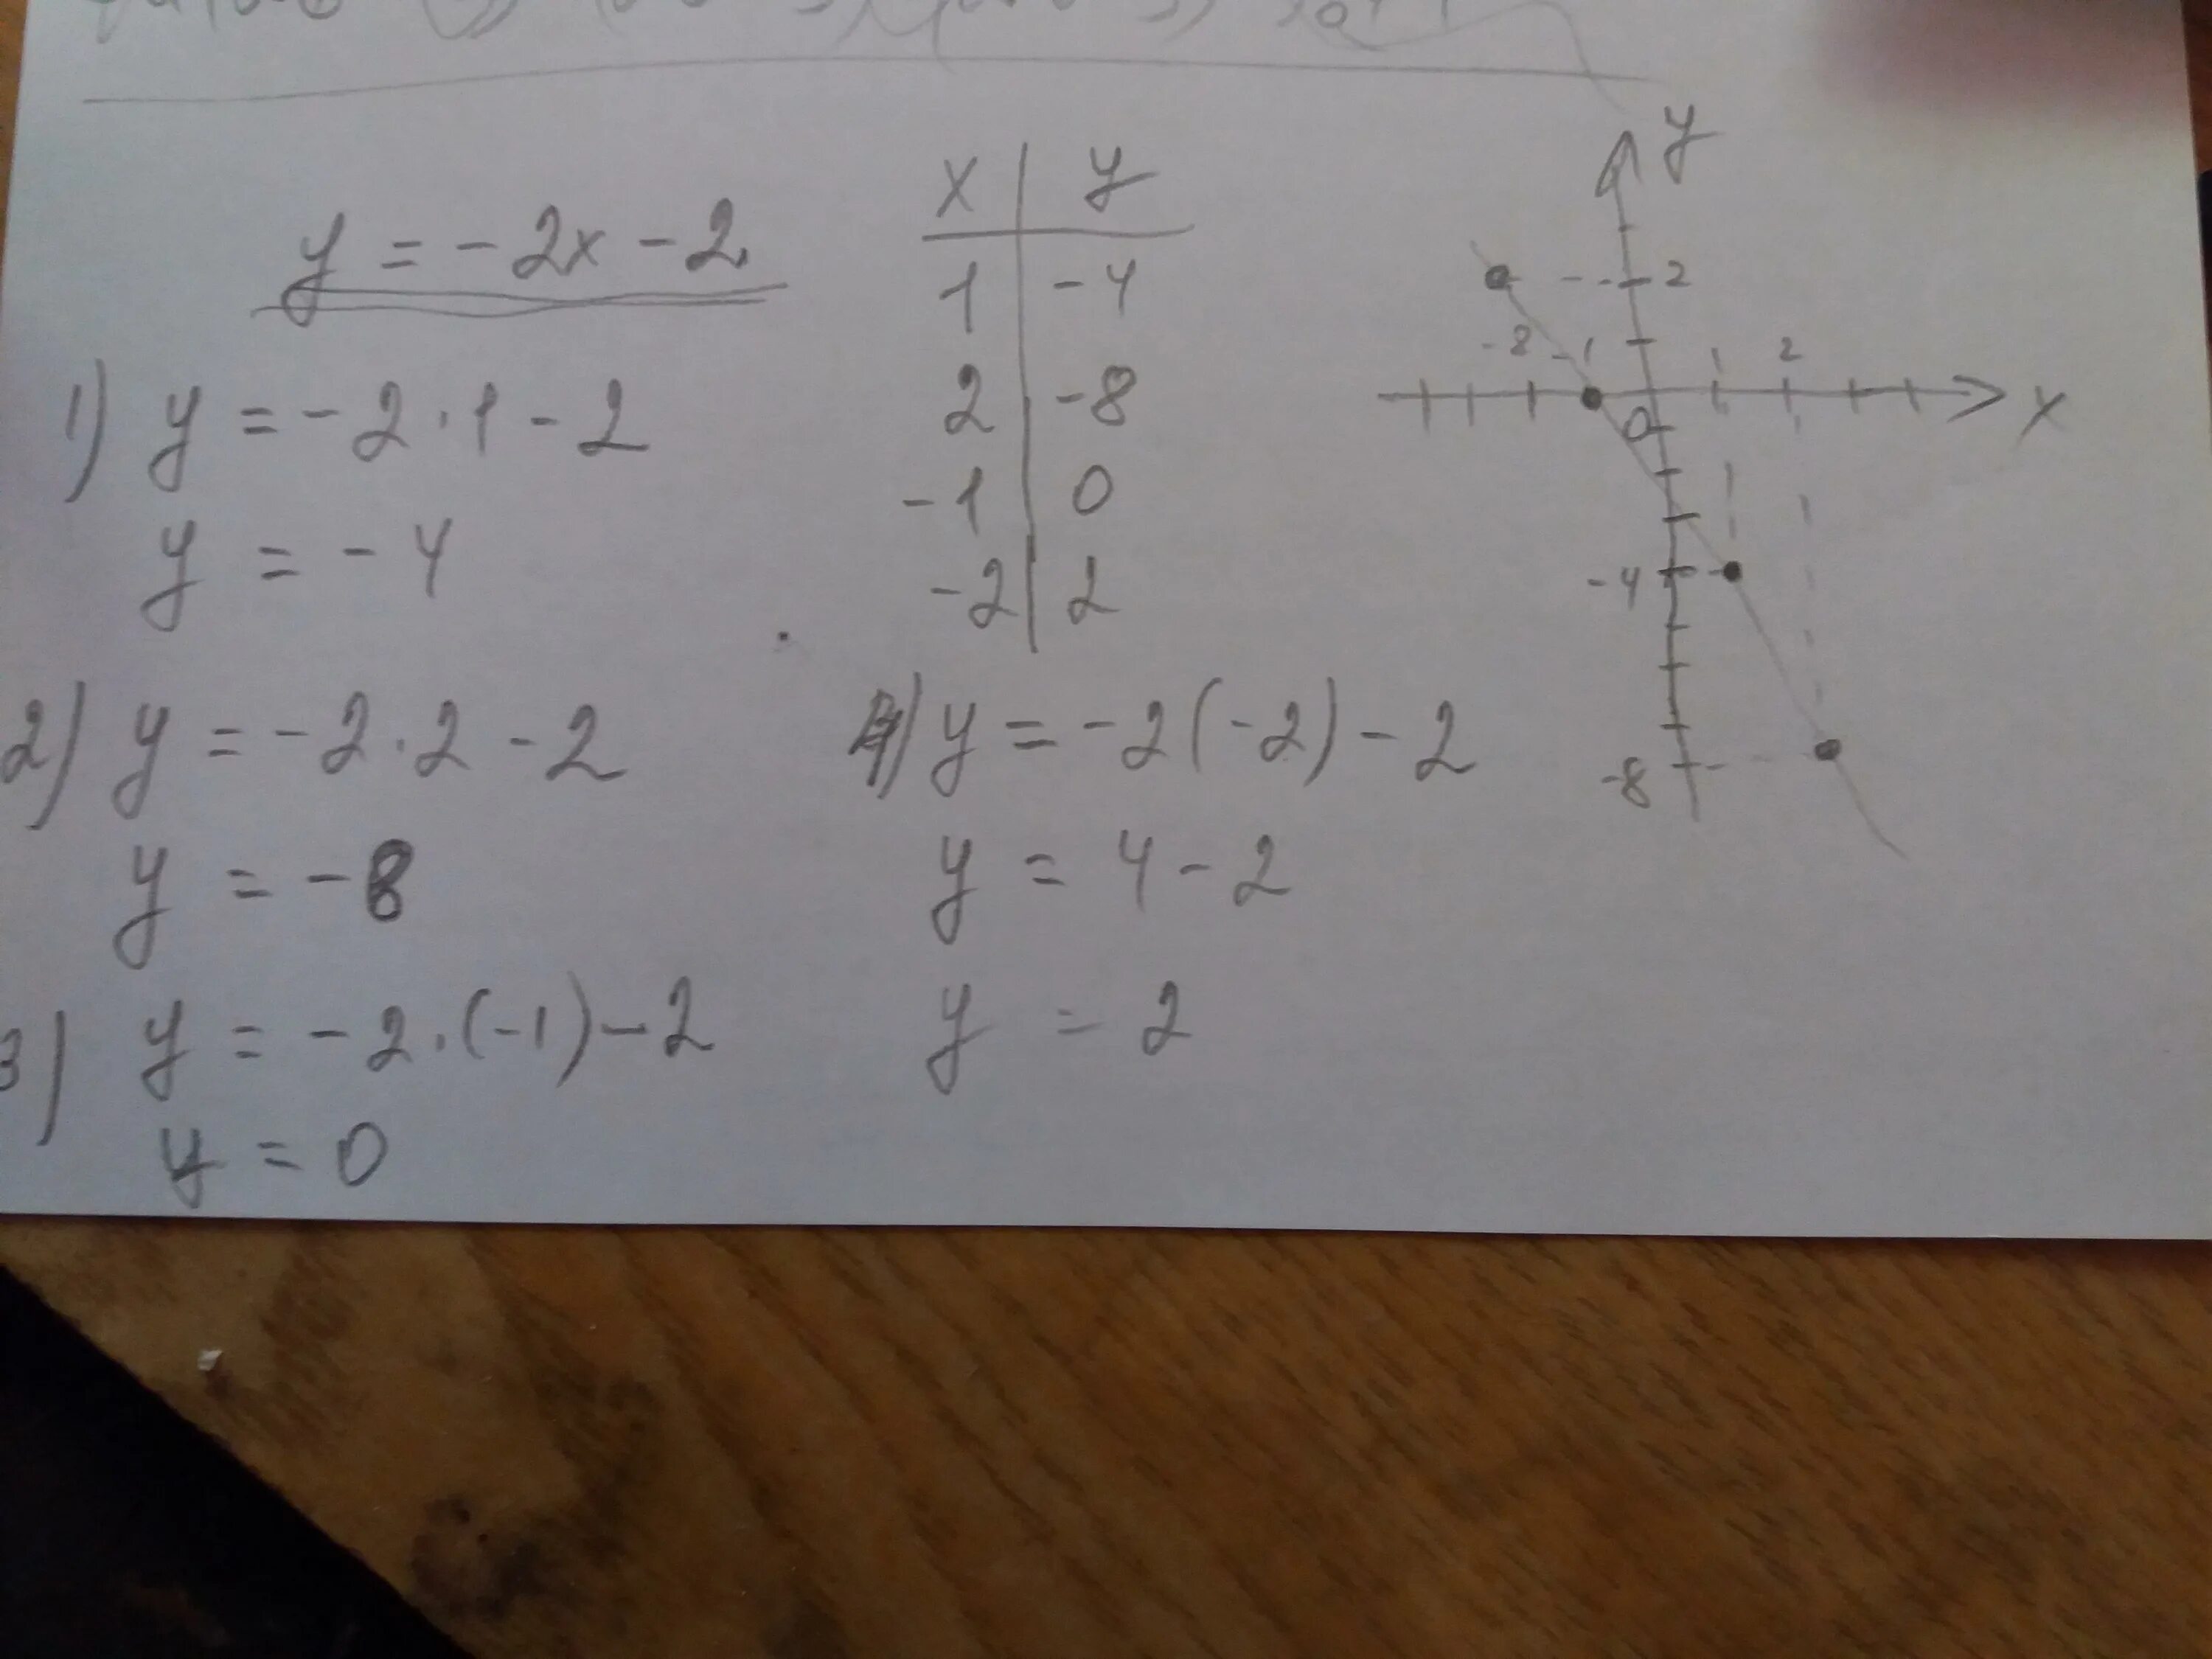 y = -2x - 2
1) y = -2 · 1 - 2
y = -4
2) y = -2 · 2 - 2
y = -8
3) y = -2 · (-1) - 2
y = 0
x | y
1 | -4
2 | -8
-1 | 0
-2 | 2
4) y = -2(-2) - 2
y = 4 - 2
y = 2
y
2
-8 -1 1 2
0 x
-4
-8